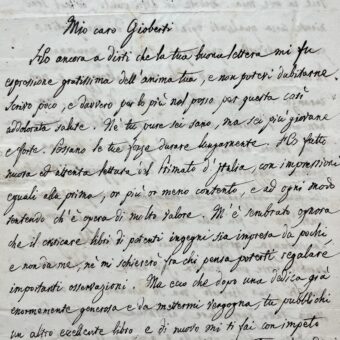 Mio caro Gioberti
Ho ancora a dirti che la tua buona lettera mi fu
espressione gratissima dell'anima tua, e non potevi dubitarne.
Scrivo poco, e davvero per lo più nol posso per questa così
addolorata salute. Nè tu pure sei sano, ma sei più giovane
e forte. Possano le tue forze durare lungamente. Ho fatto
nuova ed attenta lettura del Primato d'Italia, con impressioni
eguali alla prima, or più or meno contento, e ad ogni modo
sentendo ch'è opera di molto valore. M'è sembrato ognora
che il criticare libri di potenti ingegni sia impresa da pochi,
e non da me, nè mi schiererò fra chi pensa poterti regalare
importanti osservazioni. Ma ecco che dopo una dedica già
enormemente generosa e da mettermi vergogna, tu pubblichi
un altro eccellente libro e di nuovo mi ti fai con impeto